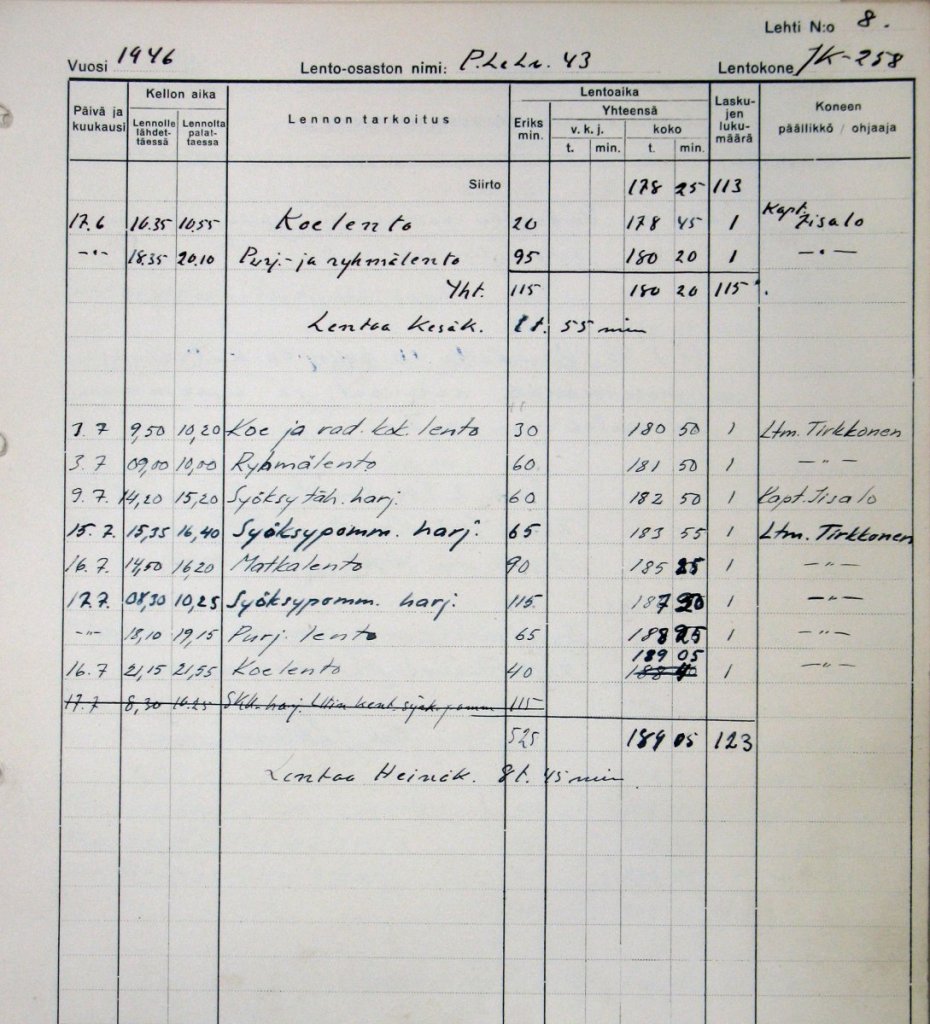 Lehti N:o 8.
Vuosi 1946 Lento-osaston nimi: P.Le.Lv. 43 Lentokone JK-258
Päivä ja kuukausi Kellon aika Lennolle lähdettäessä Lennolta palattaessa Lennon tarkoitus Lentoaika Eriks min. Yhteensä v. k. j. t. min. koko t. min. Laskujen lukumäärä Koneen päällikkö / ohjaaja
Siirto 178 25 113
17.6 10.35 10.55 Koelento 20 178 45 1 Kapt. Iisalo
—"— 18.35 20.10 Purj.- ja ryhmälento 95 180 20 1 —"—
Yht. 115 180 20 115
Lentoa Kesäk. 1 t. 55 min
3.7 9,50 10,20 Koe ja rad. kok. lento 30 180 50 1 Ltm. Tirkkonen
3.7 09,00 10,00 Ryhmälento 60 181 50 1 —"—
9.7. 14,20 15,20 Syöksy täh. harj. 60 182 50 1 Kapt. Iisalo
15.7. 15,35 16,40 Syöksypomm. harj. 65 183 55 1 Ltm. Tirkkonen
16.7. 14,50 16,20 Matkalento 90 185 25 1 —"—
17.7. 08,30 10,25 Syöksypomm. harj. 115 187 20 1 —"—
—"— 18,10 19,15 Purj. lento 65 188 25 1 —"—
16.7 21,15 21,55 Koelento 40 189 05 1 —"—
17.7 8,30 10.25 harj. syök. pomm 115
525 189 05 123
Lentoa Heinäk. 8 t. 45 min